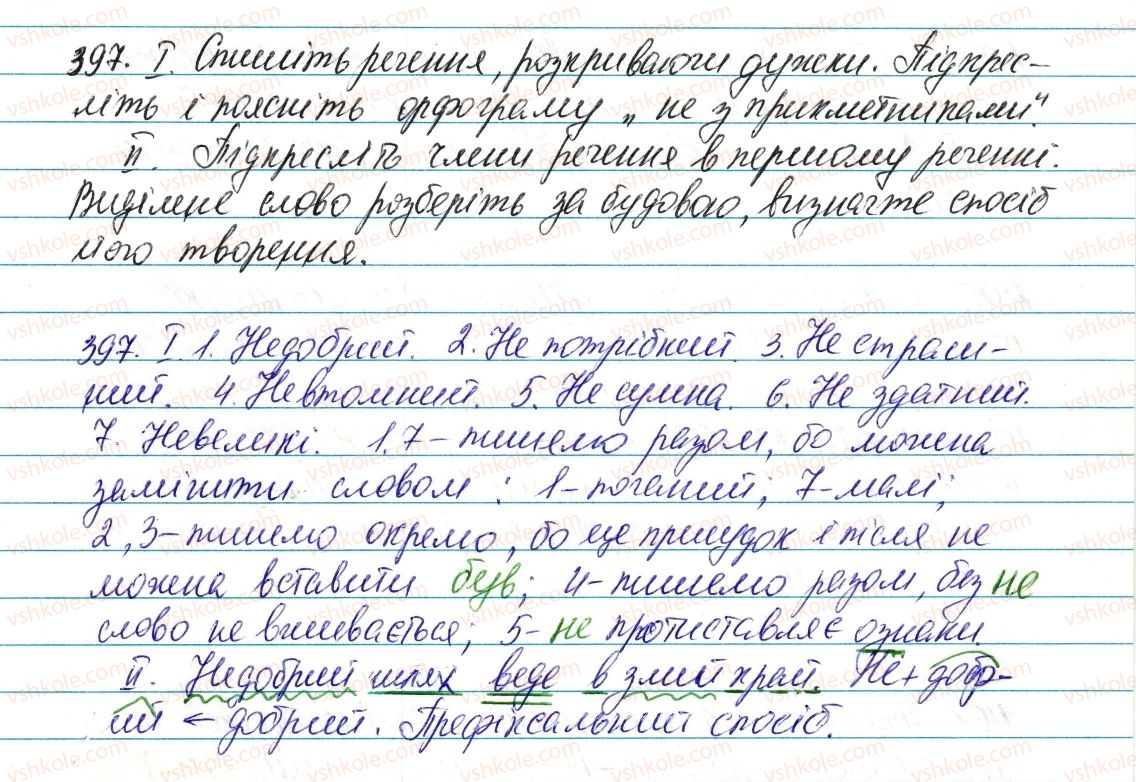 397. I. Спишіть речення, розкриваючи дужки. Підкрес-
літь і поясніть орфограму „не з прикметниками".
II. Підкресліть члени речення в першому реченні.
Виділене слово розберіть за будовою, визначте спосіб
його творення.
397. I 1. Недобрий. 2. Не потрібний. 3. Не страш-
ний. 4. Невтомний. 5. Не сумна. 6. Не здатний.
7. Невеликі. 1.7 – пишемо разом, бо можна
замінити словом : 1 – поганий; 7 – малі;
2, 3 – пишемо окремо, бо це присудок і після не
можна вставити був; 4 – пишемо разом, без не
слово не вживається; 5 – не протиставляє ознаки
II. Недобрий шлях веде в злий край. Не + добр-
ий ← добрий. Префіксальний спосіб.